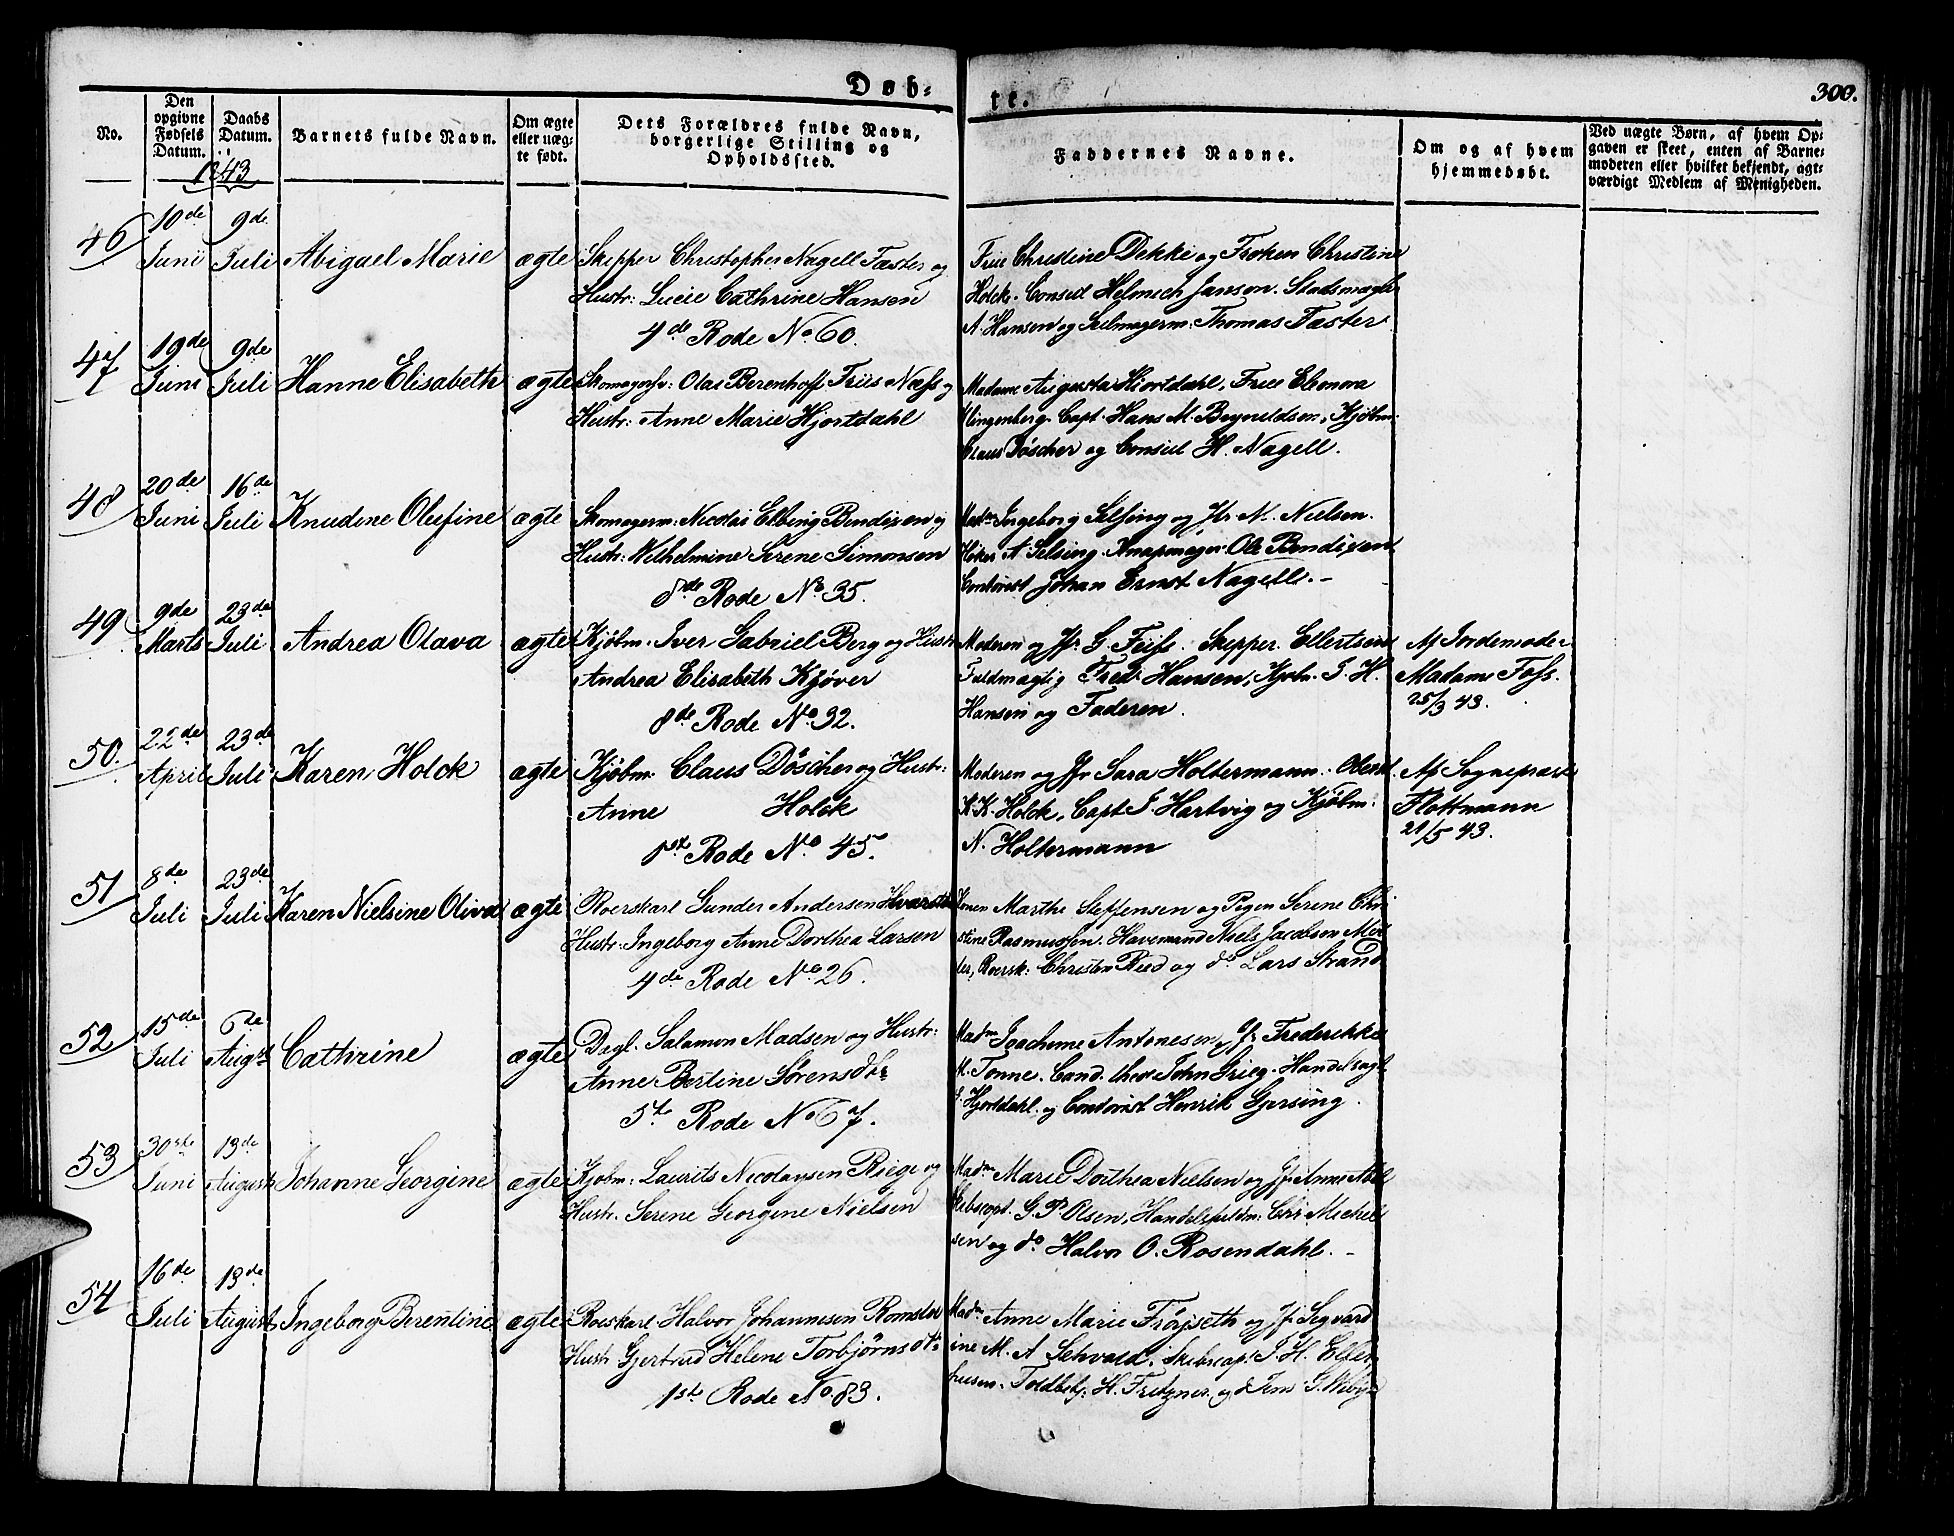 Døb-
te.
300.
No.
Den opgivne Fødsels Datum.
Daabs Datum.
Barnets fulde Navn.
Om ægte eller uægte født.
Dets Forældres fulde Navn, borgerlige Stilling og Opholdssted.
Faddernes Navne.
Om og af hvem hjemmedøbt.
Ved uægte Børn, af hvem Opgaven er skeet, enten af Barnemoderen eller hvilket bekjendt, agtværdigt Medlem af Menigheden.
1843
46
10de Juni
9de Juli
Abigael Marie
ægte
Skipper Christopher Nagell Faster og
Hustr: Lucie Cathrine Hansen
4de Rode No 60.
Frue Christine Dekke og Frøken Christine
Holck. Consul Helmich Janson. Stadsmægler
A. Hansen og Seilmagerm: Thomas Faster
47
19de Juni
9de Juli
Hanne Elisabeth
ægte
Skomagersv: Olai Berenhoff Friis Næss og
Hustr: Anne Marie Hjortdahl
Madame Augusta Hiortdahl, Frue Eleonora
Klingenberg. Capt. Hans M. Kjøbm:
Claus Döscher og Consul H. Nagell.
48
20de Juni
16de Juli
Knudine Olufine
ægte
Skomagerm: Nicolai Elbing Bendixen og
Hustr: Wilhelmine Serene Simonsen
8de Rode No 35.
Madm Ingeborg Selsing og Jfr N. Nielsen.
Høker A Selsing. Knapmager Ole Bendixen
Contorist Johan Ernst Nagell. -
49
9de Marts
23de Juli
Andrea Olava
ægte
Kjøbm. Iver Gabriel Berg og Hustr
Andrea Elisabeth Kjøver
8de Rode No 32.
Moderen og Jfr. G. Skipper Ellertsen
Fuldmægtig Fred: Hansen, Kjøbm. J. H.
Hansen og Faderen.
Af Jordemoder
Madam Foss.
25/3 43.
50.
22de April
23de Juli
Karen Holck
ægte
Kjøbm: Claus Döscher og Hustr:
Anne Holck
1st Rode No 45.
Moderen og Jfr Sara Holtermann. Oberstl.
K. K. Holck, Capt J. Hartvig og Kjøbm:
N. Holtermann
Af Sognepræst
Flottmann
21/5 43.
51
8de Juli
23de Juli
Karen Nielsine Oliva
ægte
Roerskarl Gunder Andersen
Hustr: Ingeborg Anne Dorthea Larsen
4de Rode No 26.
Konen Marthe Steffensen og Pigen Serene Chri
stine Rasmussen. Havemand Niels Jacobsen
Roersk: Christen Ried og do Lars Strand
52
15de Juli
6de Augst
Cathrine
ægte
Dagl. Salamon Madsen og Hustr:
Anne Bertine Sørensdtr
5te Rode No 67.
Madm Joachime Antonesen, Jfr Frederikke
M. Tonne. Cand. theol John Grieg. Handelsagt
Hjortdahl. og Contorist Henrik Gjersing.
53
30te Juni
13de August
Johanne Georgine
ægte
Kjøbm: Laurits Nicolaysen Riege og
Hustr. Serene Georgine Nielsen
Madm Marie Dorthea Nielsen og Jfr Anne Abel
Skibscapt. G. P. Olsen, Handelsfuldm: Chr: Michel
sen og do Halvor O. Rosendahl. -
54
16de Juli
13de August
Ingeborg Berentine
ægte
Roerskarl Halvor Johannesen
Hustr Gjertrud Helene Torbjørnsdtr
1st Rode No 83.
Madm Anne Marie Frøyseth og Jfr Segvard
ine M. A Sehvald. Skibscapt. J. H. Elfer
husen. Toldbetj. H. Fritzner. og do Jens G. Wibye